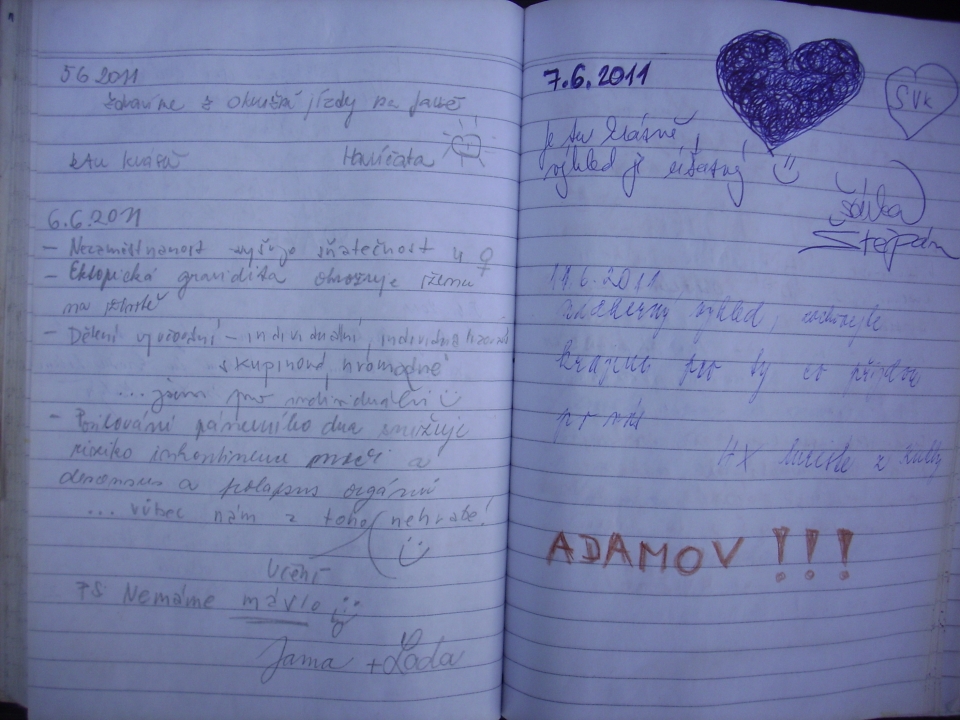 5 6 2011
zdravíme z okružní jízdy na
Havíčata
6.6.2011
- Nezaměstnanost snižuje sňatečnost u ♀
- Ektopická gravidita ohrožuje ženu
na životě
- Dělení cvičování - individuální, individualizované
skupinové, hromadné
... jsem pro individuální
- Posilování pánevního dna snižuje
riziko inkontinence moči a
descensus a prolapsus orgánů
... vůbec nám z toho nehrabe!
Učení
PS Nemáme máslo
Jana + Lada
7.6.2011
SVK
Je tu krásně,
výhled je úžasný
Štěpán
11.6.2011
nádherný výhled, zachovejte
krajinu pro ty co přijdou
po nás
z
ADAMOV !!!